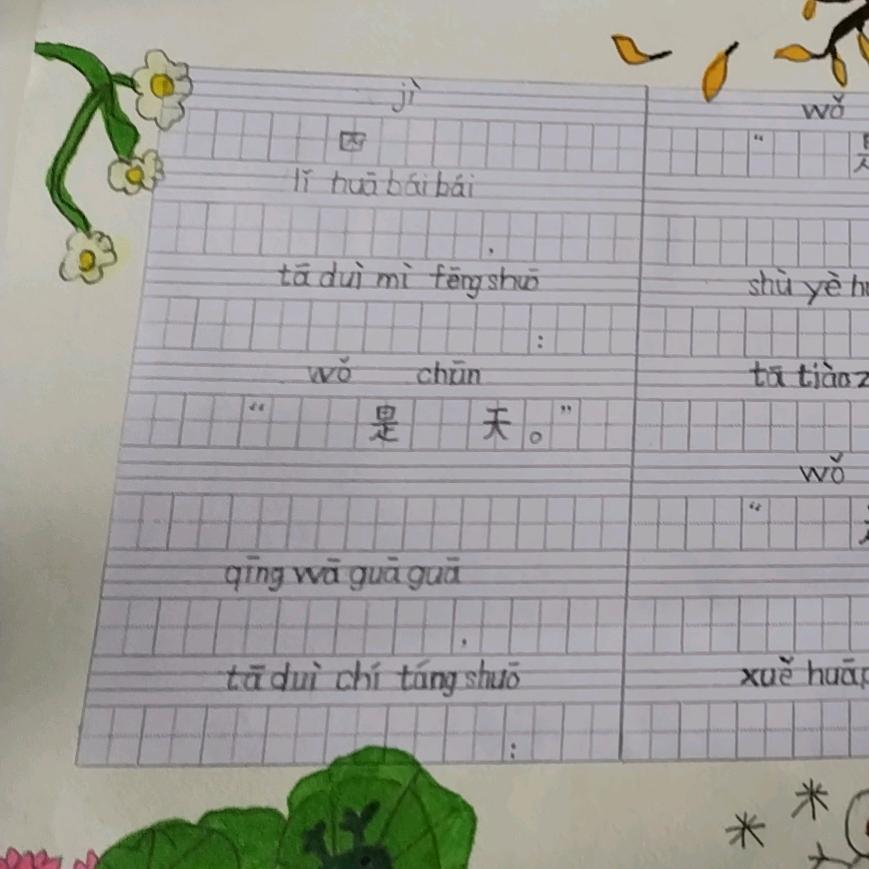 jì
四
lǐ huā bái bái
，
tā duì mì fēng shuō
：
wǒ chūn
“ 是 天 。”
qīng wā guā guā
，
tā duì chí táng shuō
：
wǒ
“
shù yè
tā tiào
wǒ
“
xuě huā